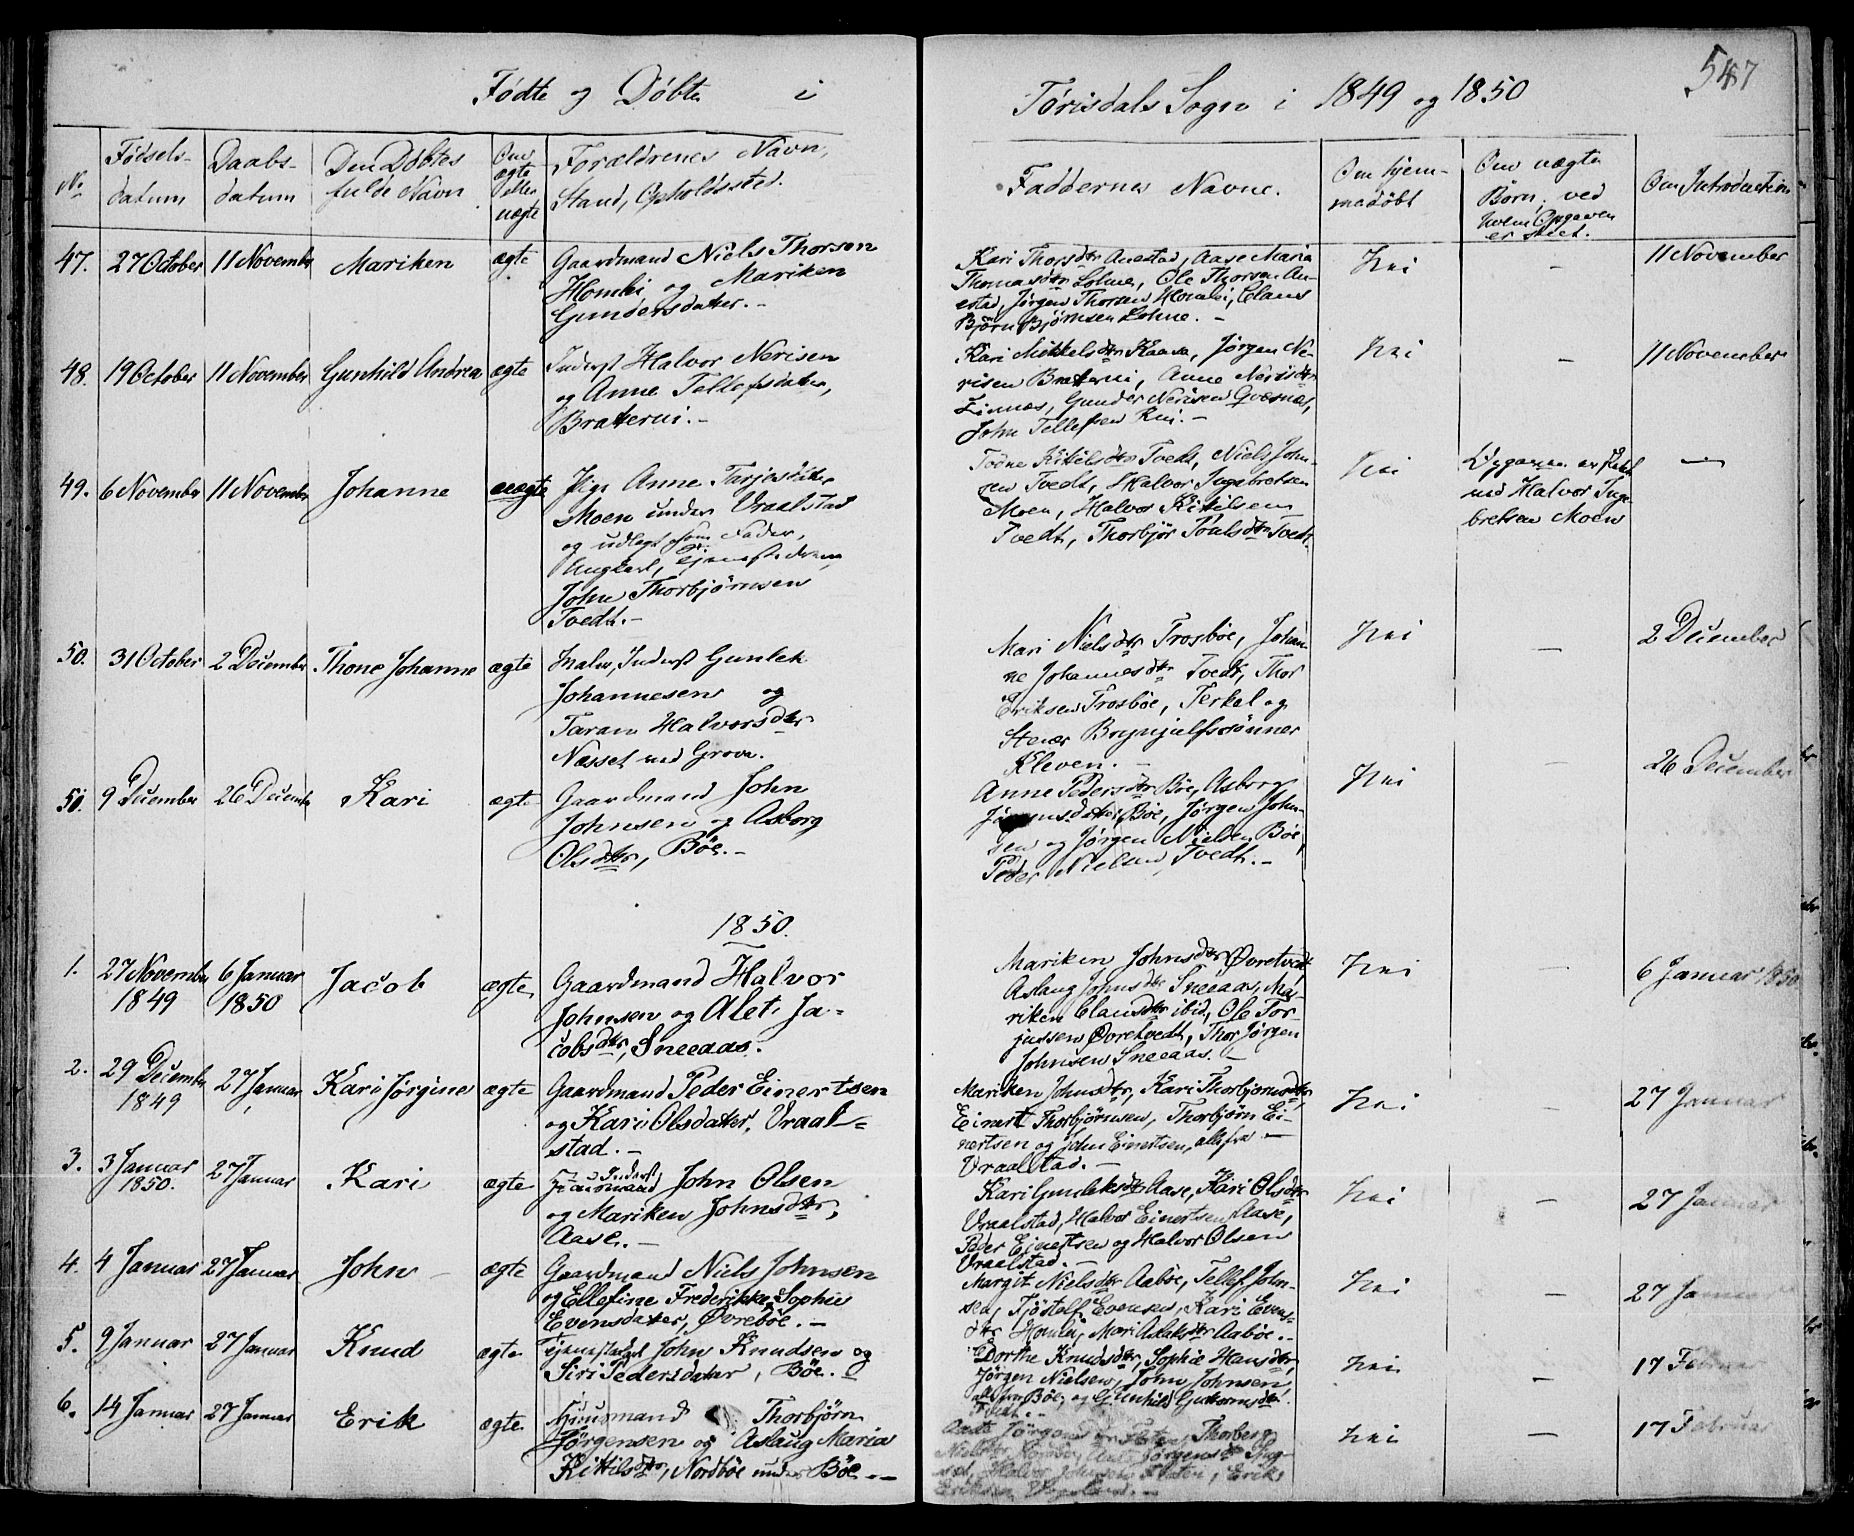 547
Fødte og Døbte i Tørisdals Sogn i 1849 og 1850
No
Fødsels-
datum
Daabs-
datum
Den Døbtes
fulde Navn
Om
ægte
eller
uægte
Forældrenes Navn,
Stand, Opholdssted.
Faddernes Navne.
Om hjem-
medøbt
Om uægte
Børn, ved
hvem Opgaven
er skeet.
Om Introduction
47. 27 October 11 November Mariken ægte
Gaardmand Niels Thorsen
Homlei og Mariken
Gundersdatter. -
Kari Thorsdtr Anestad, Aase Maria
Thomasdtr Lohne, Ole Thorsen An-
estad, Jørgen Thorsen Homlei, Claus
Bjørn Bjørnsen Lohne. -
Nei - 11 November
48. 19 October 11 November Gunhild Andrea ægte
Inderst Halvor Nerisen
og Anne Tellefsdatter,
Bratterui. -
Kari Mikkelsdtr Kaasa, Jørgen Ne-
risen Bratterui, Anne Nerisdtr
Finnæs, Gunder Nerisen Qvæsnæs,
John Tellefsen Rui. -
Nei - 11 November
49. 6 November 11 November Johanne uægte
Pige Anne Tarjesdatter
Moen under Vraalstad
og udlagt som Fader,
Ungkarl, Tjenestedreng
John Thorbjørnsen
Tvedt. -
Tone Kittilsdtr Tvedt, Niels John-
sen Tvedt, Halvor Ingebretsen
Moen, Halvor Kittilsen
Tvedt, Thorbjør Poulsdtr Tvedt.
Nei
Opgaven er skeet
ved Halvor Inge-
bretsen Moen
-
50. 31 October 2 December Thone Johanne ægte
Inderst Gunlek
Johannesen og
Taran Halvorsdtr
Næsset ved Grova.
Mari Nielsdtr Trosbøe, Johan-
ne Johannesdtr Tvedt, Thor
Eriksen Trosbøe, Terkel og
Stener Brynjulfssønner
Kleven. -
Nei - 2 December
51. 9 December 26 December Kari ægte
Gaardmand John
Johnsen og Asborg
Olsdtr, Bøe. -
Anne Pedersdtr Bøe, Asborg
Bøe, Jørgen John-
sen og Jørgen Nielsen Bøe,
Peder Nielsen Tvedt. -
Nei - 26 December
1850.
1. 27 November 6 Januar Jacob ægte
1849 1850
Gaardmand Halvor
Johnsen og Alet Ja-
cobsdtr, Sneeaas.
Mariken Johnsdtr Øvretvedt
Aslaug Johnsdtr Sneeaas, Ma-
riken Clausdtr ibid, Ole Tor-
jussen Øvretvedt, Thor Jørgen
Johnsen Sneeaas. -
Nei - 6 Januar 1850
2. 29 December 27 Januar Kari Jørgine ægte
1849
Gaardmand Peder Einertsen
og Kari Olsdatter, Vraal-
stad. -
Mariken Johnsdtr, Kari Thorbjørnsdtr,
Einert Thorbjørnsen, Thorbjørn Ei-
nertsen og John Einertsen, alle fra
Vraalstad. -
Nei - 27 Januar
3. 3 Januar 27 Januar Kari ægte
1850.
Inderst
Huusmand John Olsen
og Mariken Johnsdtr,
Aase. -
Kari Gunleksdtr Aase, Kari Olsdtr
Vraalstad, Halvor Einertsen Aase,
Peder Einertsen og Halvor Olsen
Vraalstad. -
Nei - 27 Januar
4. 4 Januar 27 Januar John ægte
Gaardmand Niels Johnsen
og Ellefine Frederikke Sophie
Evensdatter, Øvrebøe. -
Margit Nielsdtr Aabøe, Tellef John-
sen, Tjøstolf Evensen, Kari Evens-
dtr Homlei, Mari Aslaksdtr Aabøe. -
Nei - 27 Januar
5. 9 Januar 27 Januar Knud ægte
Tjenestekarl John Knudsen og
Siri Pedersdatter, Bøe. -
Dorthe Knudsdtr, Sophie Hansdtr,
Jørgen Nielsen, John Johnsen
alle fra Bøe, og Gunhild Guttormsdtr
Tvedt. -
Nei - 17 Februar
6. 14 Januar 27 Januar Erik ægte
Huusmand Thorbjørn
Jørgensen og Aslaug Maria
Kittilsdtr, Nordbøe under Bøe. -
Jørgensdtr Thorberg
Nielsdtr Jørgensdtr
Halvor Johnsen Erik
Eriksen
Nei - 17 Februar